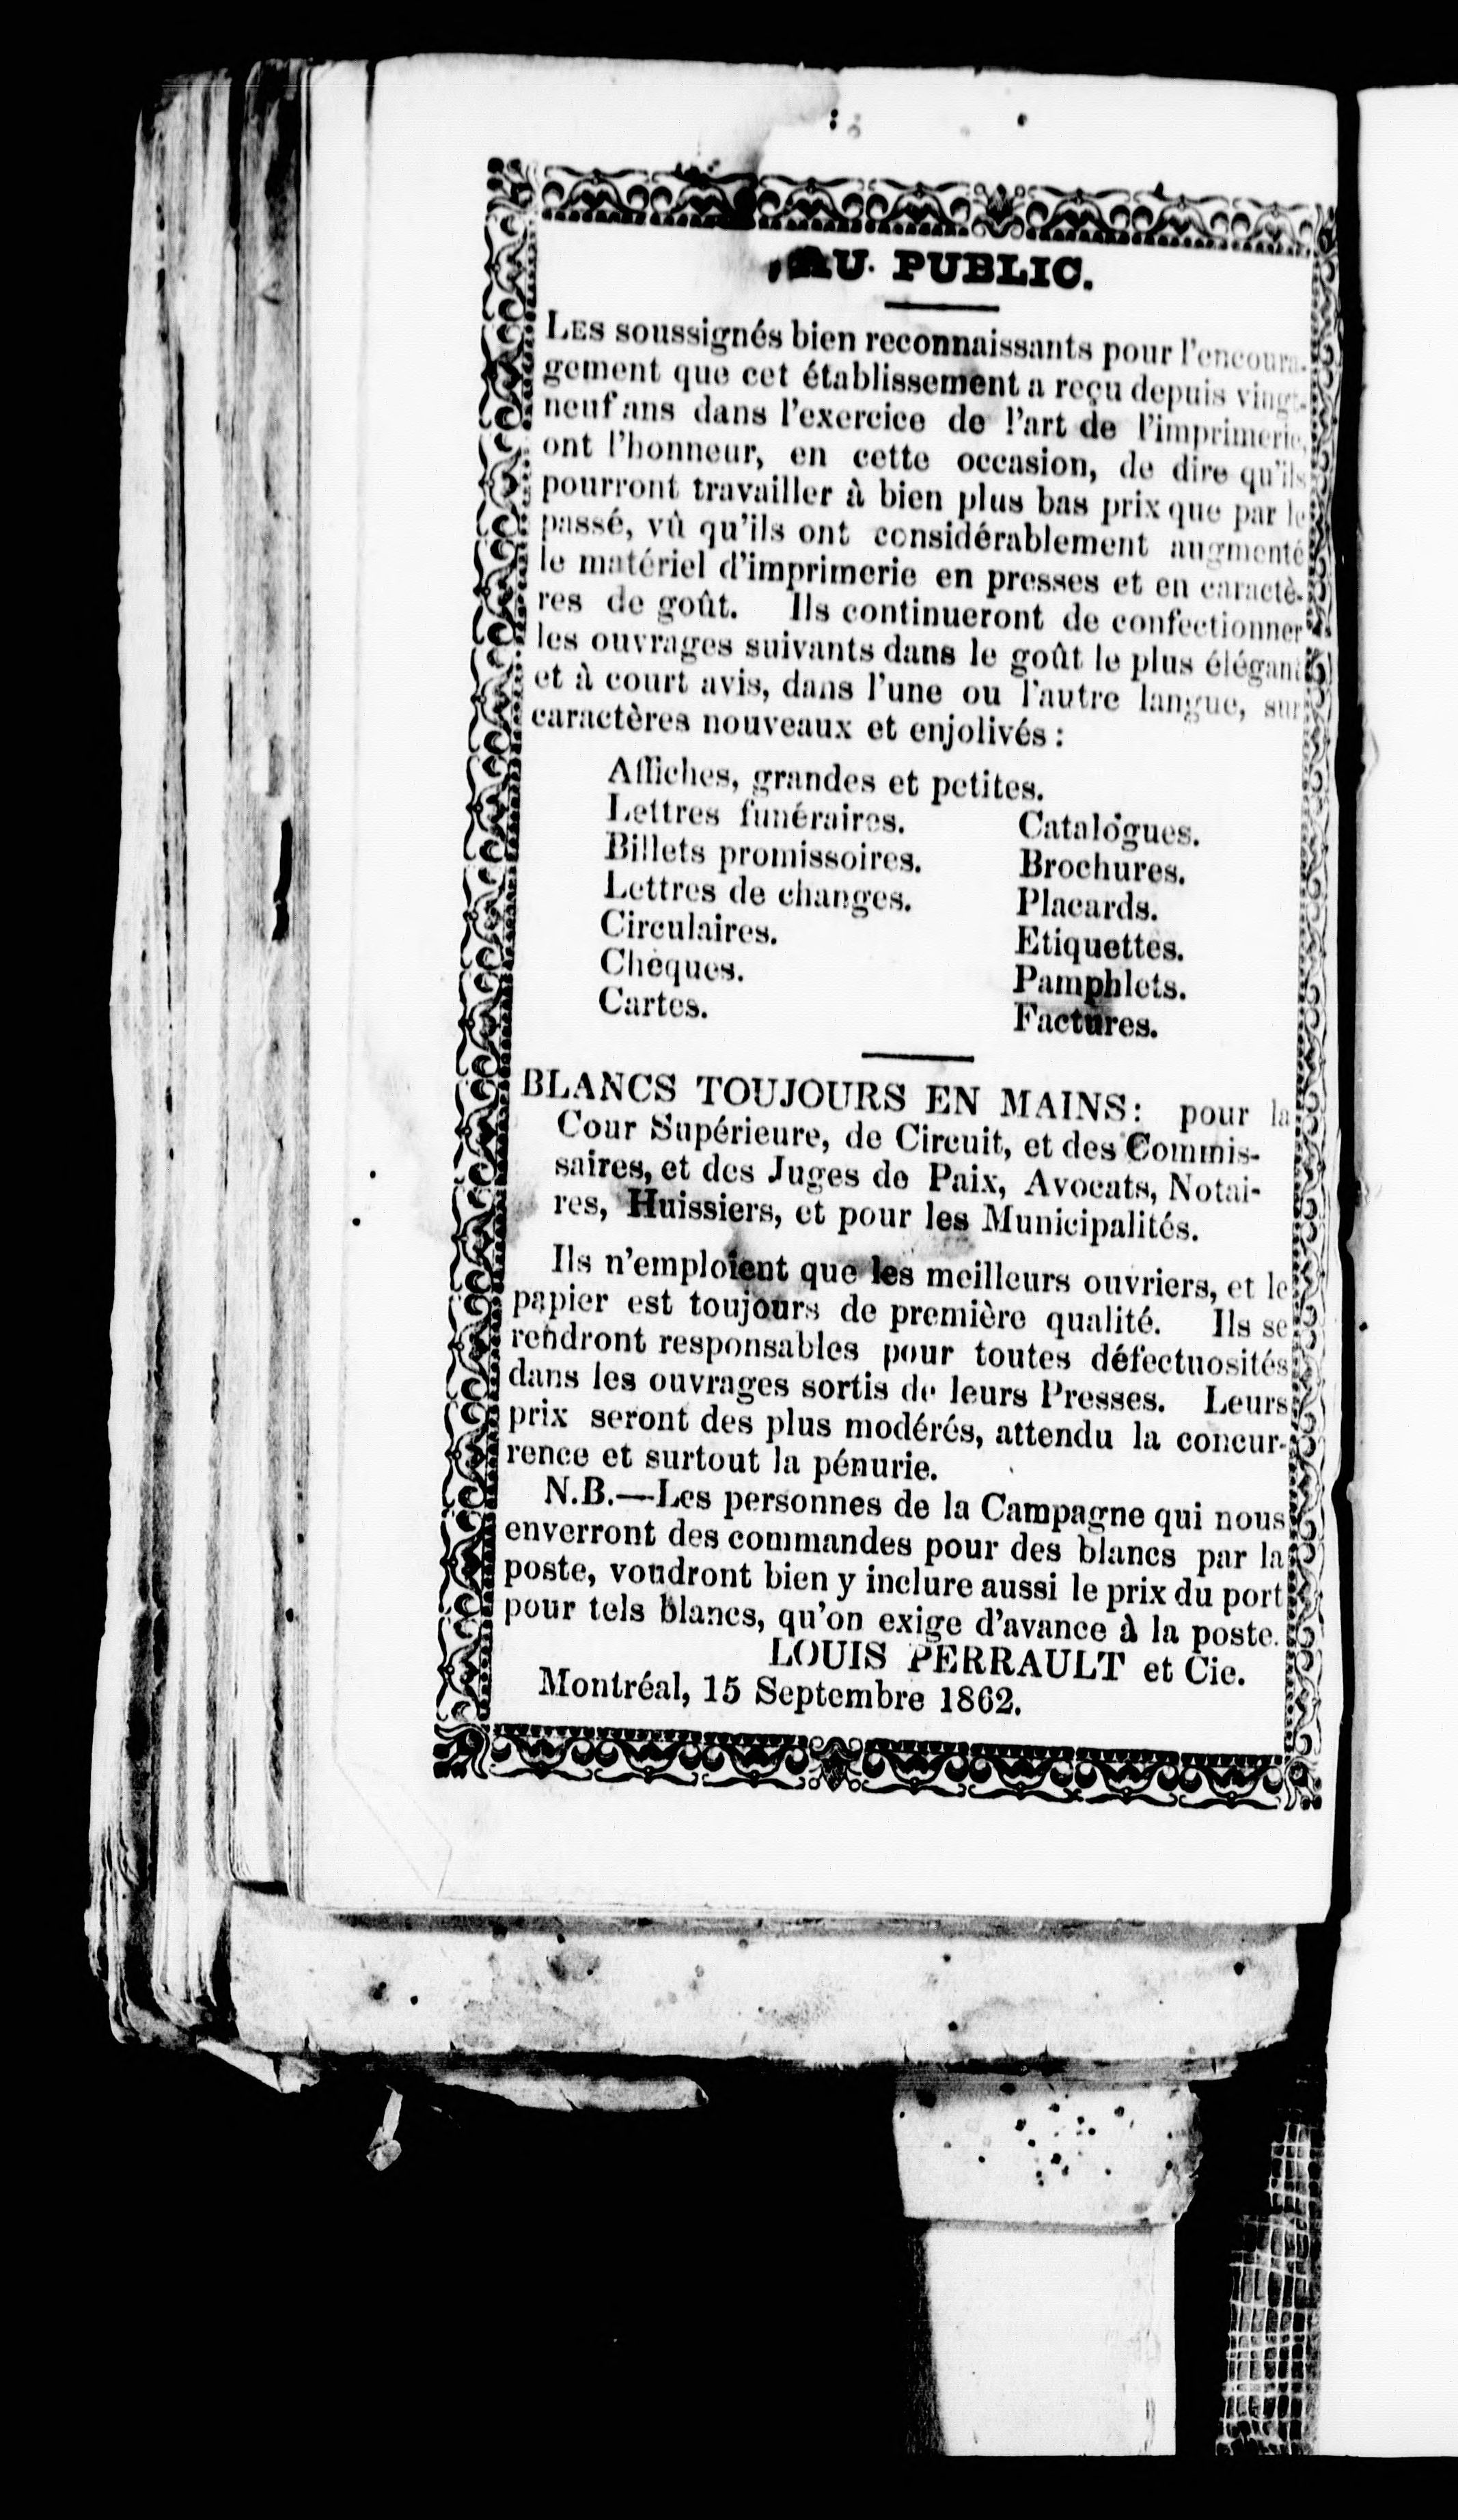 AU PUBLIC.
LES soussignés bien reconnaissants pour l'encoura-
gement que cet établissement a reçu depuis vingt-
neuf ans dans l'exercice de l'art de l'imprimerie,
ont l'honneur, en cette occasion, de dire qu'ils
pourront travailler à bien plus bas prix que par le
passé, vû qu'ils ont considérablement augmenté
le matériel d'imprimerie en presses et en caractè-
res de goût. Ils continueront de confectionner
les ouvrages suivants dans le goût le plus élégant
et à court avis, dans l'une ou l'autre langue, sur
caractères nouveaux et enjolivés :
Affiches, grandes et petites.
Lettres funéraires.
Billets promissoires.
Lettres de changes.
Circulaires.
Chèques.
Cartes.
Catalogues.
Brochures.
Placards.
Etiquettes.
Pamphlets.
Factures.
BLANCS TOUJOURS EN MAINS: pour la
Cour Supérieure, de Circuit, et des Commis-
saires, et des Juges de Paix, Avocats, Notai-
res, Huissiers, et pour les Municipalités.
Ils n'emploient que les meilleurs ouvriers, et le
papier est toujours de première qualité. Ils se
rendront responsables pour toutes défectuosités
dans les ouvrages sortis de leurs Presses. Leurs
prix seront des plus modérés, attendu la concur-
rence et surtout la pénurie.
N.B.—Les personnes de la Campagne qui nous
enverront des commandes pour des blancs par la
poste, voudront bien y inclure aussi le prix du port
pour tels blancs, qu'on exige d'avance à la poste.
LOUIS PERRAULT et Cie.
Montréal, 15 Septembre 1862.